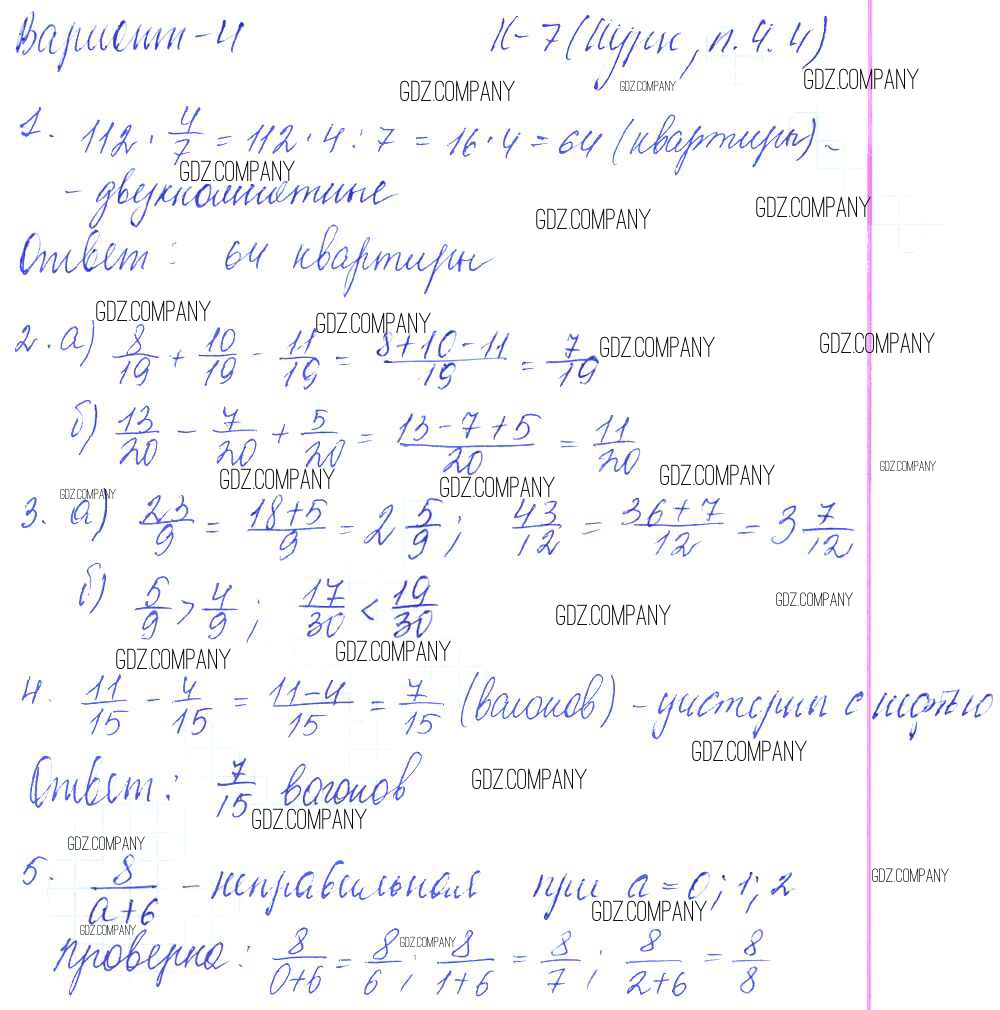 Вариант-4 К-7 (Нурк, п. 4.4)
GDZ.COMPANY GDZ.COMPANY GDZ.COMPANY
1. 112 · 4/7 = 112 · 4 : 7 = 16 · 4 = 64 (квартиры) -
GDZ.COMPANY
- двухкомнатные
GDZ.COMPANY GDZ.COMPANY
Ответ: 64 квартиры
GDZ.COMPANY GDZ.COMPANY
2. а) 8/19 + 10/19 - 11/19 = (8+10-11)/19 = 7/19
GDZ.COMPANY GDZ.COMPANY
б) 13/20 - 7/20 + 5/20 = (13-7+5)/20 = 11/20
GDZ.COMPANY GDZ.COMPANY GDZ.COMPANY GDZ.COMPANY
GDZ.COMPANY
3. а) 23/9 = (18+5)/9 = 2 5/9; 43/12 = (36+7)/12 = 3 7/12
б) 5/9 > 4/9; 17/30 < 19/30
GDZ.COMPANY GDZ.COMPANY
GDZ.COMPANY GDZ.COMPANY
4. 11/15 - 4/15 = (11-4)/15 = 7/15 (вагонов) - цистерны с нефтью
GDZ.COMPANY
Ответ: 7/15 вагонов
GDZ.COMPANY GDZ.COMPANY
GDZ.COMPANY
5. 8/(а+6) - неправильная при а = 0; 1; 2
GDZ.COMPANY GDZ.COMPANY
GDZ.COMPANY GDZ.COMPANY
проверка: 8/(0+6) = 8/6; 8/(1+6) = 8/7; 8/(2+6) = 8/8